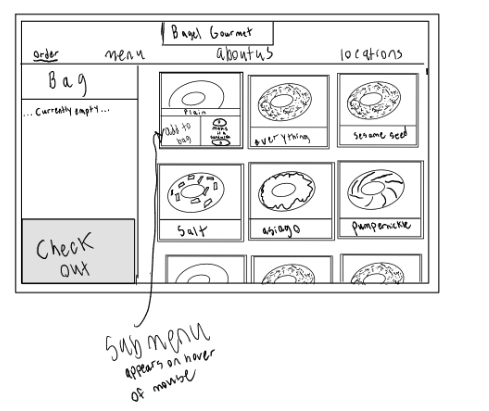 Bagel Gourmet
order menu about us locations
Bag
...Currently empty...
Plain
add to bag
make it a sandwich
everything
sesame seed
Salt
asiago
pumpernickle
Check
out
Sub menu
appears on hover
of mouse